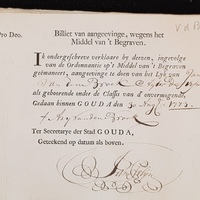 Pro Deo.
Billiet van aangeevinge, wegens het
Middel van 't Begraven.
Ik ondergeschreve verklaare by deezen, ingevolge
van de Ordonnantie op 't Middel van 't Begraven
geëmaneert, aangeevinge te doen van het Lyk van
van den Broek
als gehoorende onder de Classis van d'onvermogende.
Gedaan binnen GOUDA, den 30 1788.
van den Broek
Ter Secretarye der Stad GOUDA,
Geteekend op datum als boven.